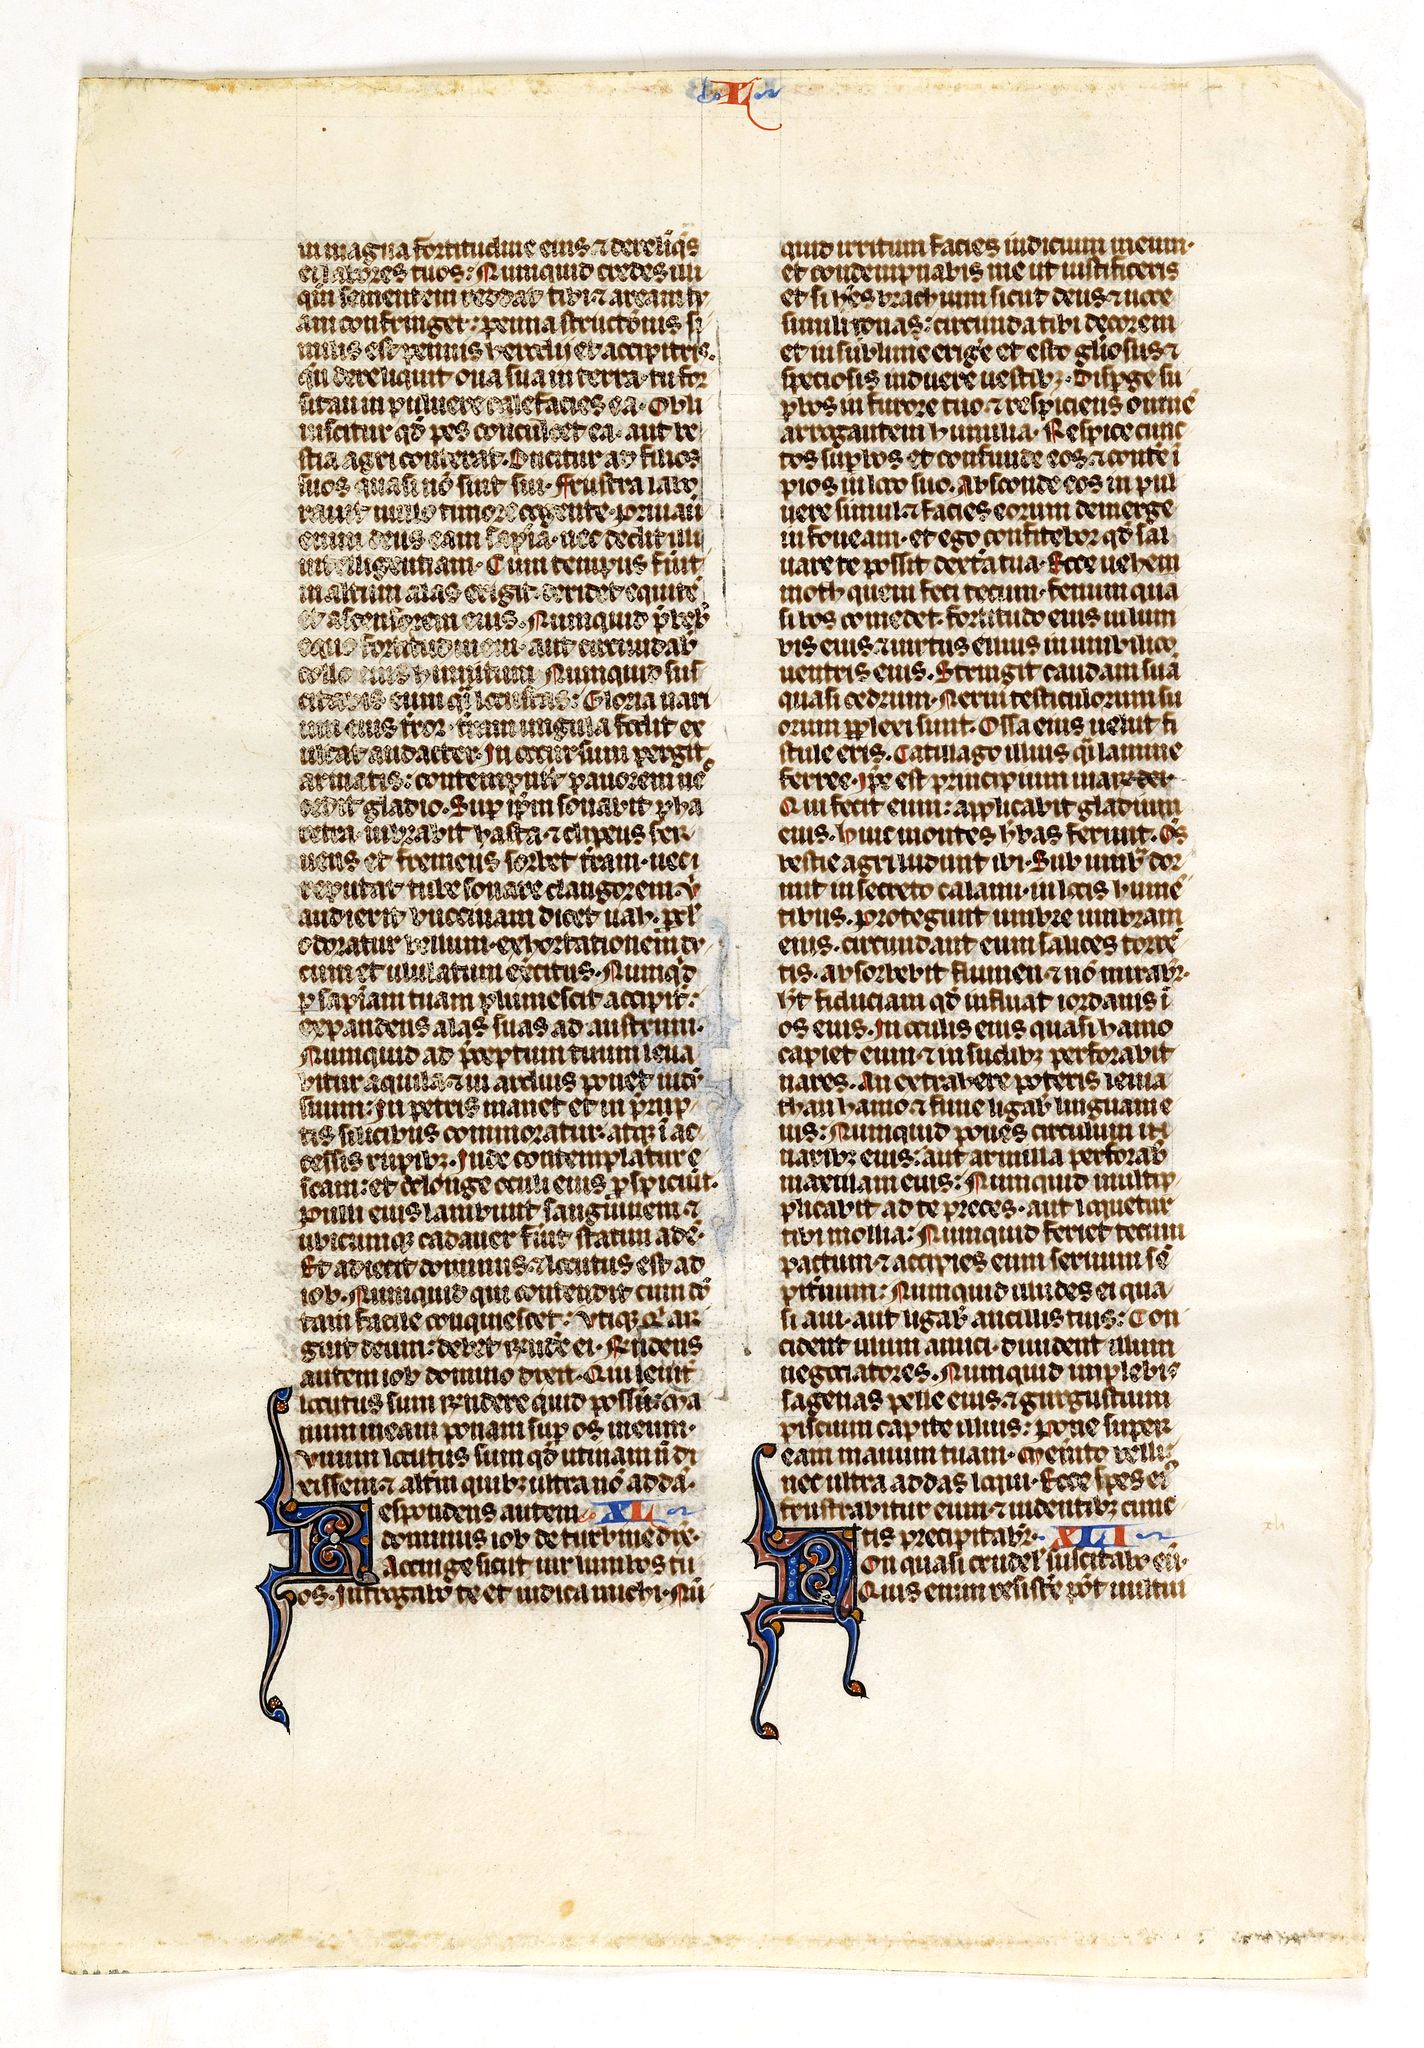 L
in magna fortitudine eius ⁊ derelīqs
ei labores tuos: Numquid credes illi
qn̄ sementem reddat tibi ⁊ aream su
am congreget: penna structōnis si
milis est pennis herodii et accipitris.
qn̄ dereliquit oua sua in terra. tu for
sitan in puluere calefacies ea. Obli
uiscitur qd̄ pes conculcet ea. aut be
stia agri conterat. Duritur ad filios
suos quasi nō sint sui. Frustra labo
rauit nullo timore cogente. priuauit
enim deus eam sapīa. nec dedit illi
intelligentiam. Cum tempus fūit
in altum alas erigit. deridet equitē
et ascensorem eius. Numquid p̄beb̄
equo fortitudinem. aut circūdab̄
collo eius hinnitum Numquid sus
citabis eum q̄i locustas: Gloria nari
um eius t̄ror. t̄ram ungula fodit ex
ultat audacter. In occursum pergit
armatis: contempnit pauorem nec
cedit gladio. Sup ip̄m sonabit pha
retra. uibrabit hasta ⁊ clipeus fer
uens et fremens sorbet t̄ram. nec
reputat tube sonare clangorem. V
audierit buccinam dicet uah. p̄cl
odoratur bellum. exhortationem du
cum et ululatum exc̄itus. Numqd̄
p sapīam tuam plumescit accipit̄:
expandens alas suas ad austrum.
Numquid ad p̄ceptum tuum leua
bitur aquila. ⁊ in arduis ponet nidū
suum: In petris manet et in p̄rup
tis silicibus commoratur. atqꝫ ī ac
cessis rupibꝫ. Inde contemplatur e
scam: et de longe oculi eius p̄spiciūt.
Pulli eius lambunt sanguinem ⁊
ubicumqꝫ cadauer fūit statim adē.
Et adiecit dominus. ⁊ locutus est ad
iob. Numquid qui contendit cum dō
tam facile conquiescet: Vtiqꝫ q̄ ar
guit deum: debet r̄ndē ei. R̄ndens
autem iob domino dixit. Qui leuit̄
locutus sum r̄ndere quid possū: Ma
num meam ponam sup os meum.
Vnum locutus sum qd̄ utinam n̄ di
xissem. ⁊ altm̄ quibꝫ ultra nō addā.
Respondens autem XL
dominus iob de turbine dix̄.
Accinge sicut uir lumbos tu
os. Interrogabo te et indica michi. Nū
quid irritum facies iudicium meum.
et condempnabis me ut iustificeris
et si hēs brachium sicut deus. ⁊ uoce
simili tonas: circunda tibi decorem
et in sublime erige et esto glīosus ⁊
speciosis induere uestibꝫ. Dispge su
pbos in furore tuo. ⁊ respiciens omnē
arrogantem humilia. Respice cunc
tos supbos et confunde eos. ⁊ conte ī
pios in loco suo. Absconde eos in pul
uere simul ⁊ facies eorum demerge
in foueam. et ego confitebor qd̄ sal
uare te possit dext̄a tua. Ecce uehem
moth quem feci tecum. fenum qua
si bos comedet. fortitudo eius in lum
bis eius ⁊ uirtus eiuus in umbilico
uentris eius. Stringit caudam suā
quasi cedrum. Nerui testiculorum su
orum pplexi sunt. Ossa eius uelut fi
stule eris. Cartilago illius q̄i lamine
ferree. Ip̄e est principium uiar. dei.
Qui fecit eum: applicabit gladium
eius. Huic montes h̄bas ferunt. Om̄s
bestie agri ludunt ibi. Sub umbr̄ dor
mit in secreto calami. in locis humē
tibus. Protegunt umbre umbram
eius. circundant eum salices torrē
tis. absorbebit flumen ⁊ nō mirabr̄.
h̄t fiduciam qd̄ influat iordanis ī
os eius. In oculis eius quasi hamo
capiet eum ⁊ in sudibꝫ perforabit
nares. An extrahere poteris leuia
than hamo ⁊ fune ligab̄ linguam e
ius: Numquid pones circulum in
naribꝫ eius: aut armilla perforab̄
maxillam eius: Numquid multip
plicabit ad te preces. aut loquetur
tibi mollia: Numquid feriet tecum
pactum. ⁊ accipies eum seruum sē
pit̄num: Numquid illudes ei qua
si aui. aut ligab̄ ancillis tuis: Con
cident illum amici. diuident illum
negociatores. Numquid implebis
sagenas pelle eius. ⁊ gurgustium
piscium capite illius: Pone super
eam manum tuam. Memento belli.
nec ultra addas loqui. Ecce spes ei⁹
frustrabitur eum. ⁊ uidentibꝫ cunc
tis precipitabr̄. XLI
Non quasi crudel̄ suscitabo eū.
Quis enim resistē pōt uultui